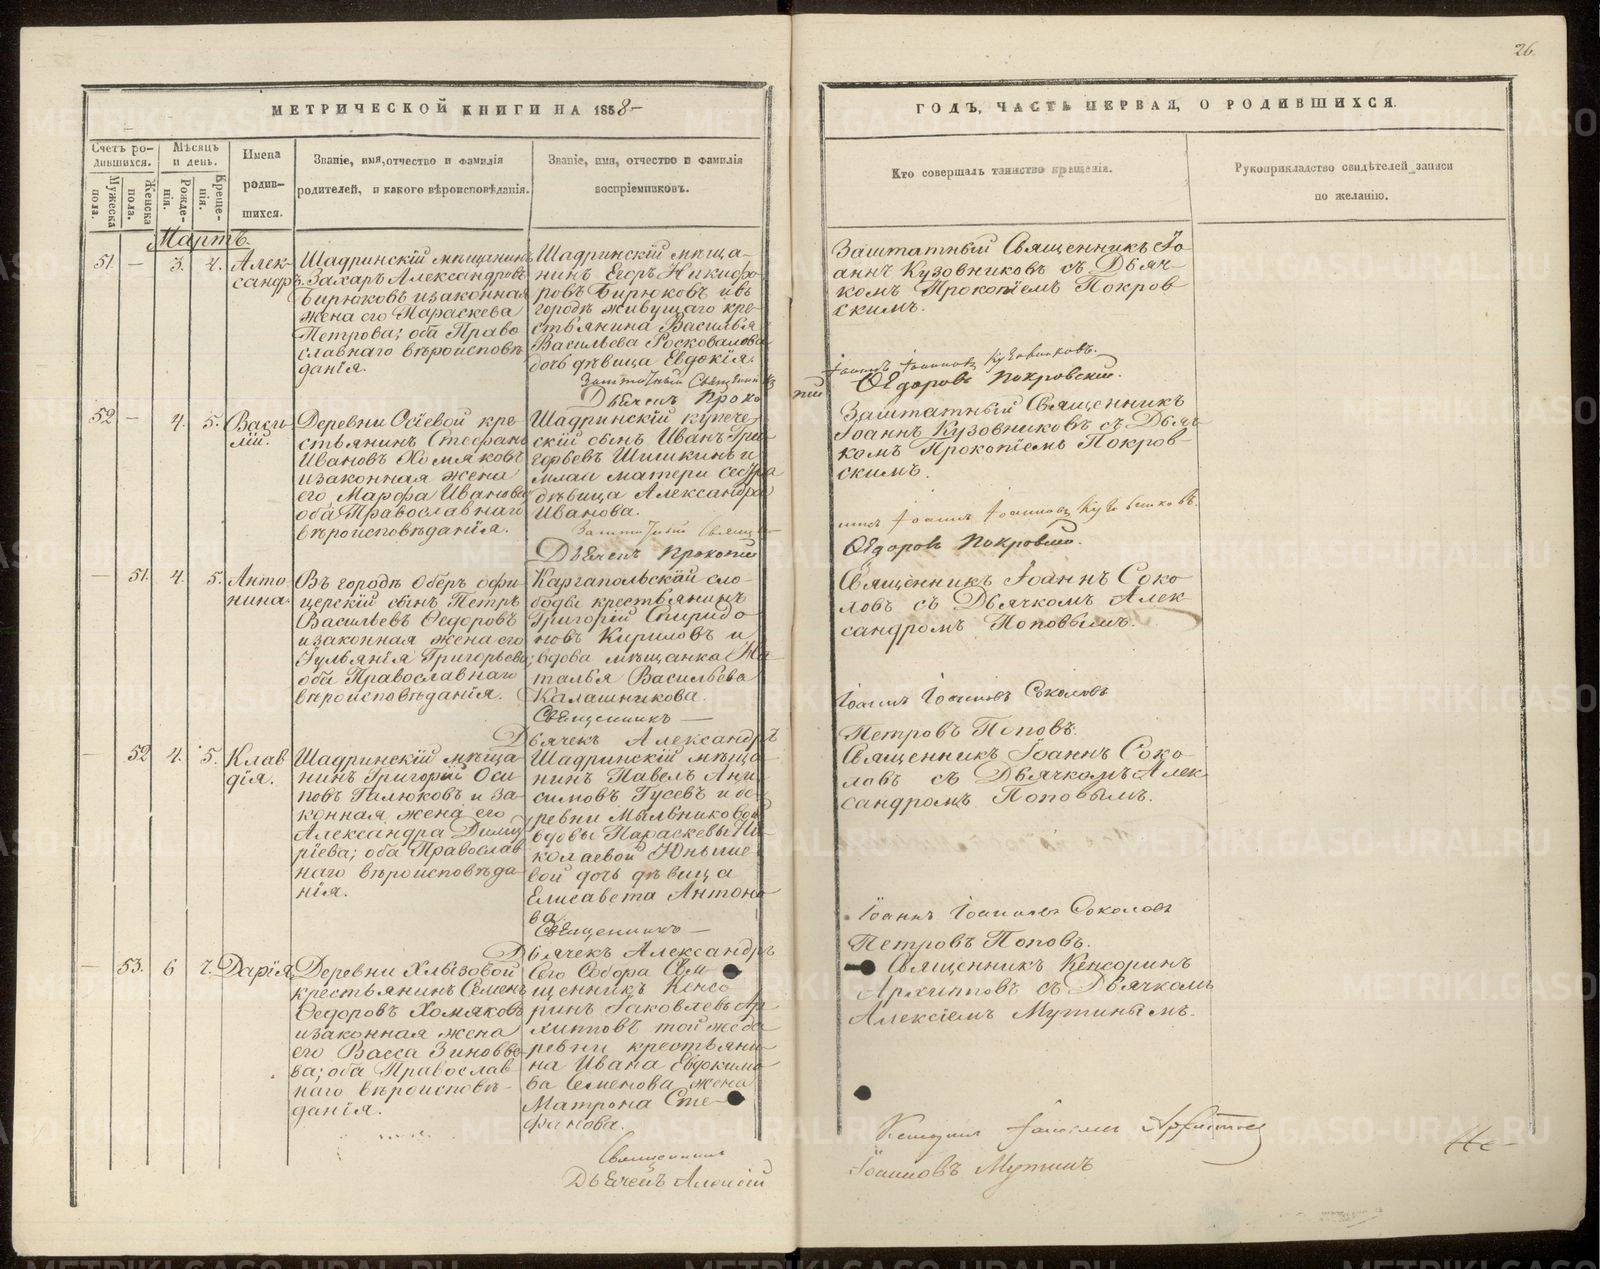 26.
МЕТРИЧЕСКОЙ КНИГИ НА 1858-
ГОДЪ, ЧАСТЬ ПЕРВАЯ, О РОДИВШИХСЯ.
Счетъ ро-
дившихся.
Мужеска
пола.
Женска
пола.
Мѣсяцъ
и день.
Рожде-
нія.
Креще-
нія.
Имена
родив-
шихся.
Званіе, имя, отчество и фамилія
родителей, и какого вѣроисповѣданія.
Званіе, имя, отчество и фамилія
воспріемниковъ.
Кто совершалъ таинство крещенія.
Рукоприкладство свидѣтелей записи
по желанію.
Мартъ.
51. — 3. 4.
Алек-
сандръ.
Шадринскій мѣщанинъ
Захаръ Александровъ
Бирюковъ и законная
жена его Параскева
Петрова; оба Право
славнаго вѣроисповѣ
данія.
Шадринскій мѣща-
нинъ Егоръ Никифо
ровъ Бирюковъ и въ
городѣ живущаго кре-
стьянина Василья
Васильева Росковалова
дочь дѣвица Евдокія.
Заштатный Священникъ
Дьячекъ Проко
Заштатный Священникъ Іо-
аннъ Кузовниковъ съ Дьяч-
комъ Прокопіемъ Покров
скимъ.
Іоаннъ Іоанновъ Кузовниковъ.
пій Ѳедоровъ Покровскій.
52 — 4. 5.
Васи-
лій.
Деревни Осіевой кре-
стьянинъ Стефанъ
Ивановъ Хомяковъ
и законная жена
его Марфа Иванова
оба Православнаго
вѣроисповѣданія.
Шадринскій купече-
скій сынъ Иванъ Гри-
горьевъ Шишкинъ и
матери сестра
дѣвица Александра
Иванова.
Заштатный Священ-
Дьячекъ Прокопій
Заштатный Священникъ
Іоаннъ Кузовниковъ съ Дьяч-
комъ Прокопіемъ Покров-
скимъ.
никъ Іоаннъ Іоанновъ Кузовниковъ.
Ѳедоровъ Покровскій.
— 51. 4. 5.
Анто-
нина.
Въ городѣ Оберъ офи-
церскій сынъ Петръ
Васильевъ Ѳедоровъ
и законная жена его
Іульянія Григорьева;
оба Православнаго
вѣроисповѣданія.
Каргапольской сло-
боды крестьянинъ
Григорій Спиридо
новъ Кириловъ и
вдова мѣщанка На-
талья Васильева
Калашникова.
Священникъ —
Дьячекъ Александръ
Священникъ Іоаннъ Соко-
ловъ съ Дьячкомъ Алек-
сандромъ Поповымъ.
Іоаннъ Іоанновъ Соколовъ
Петровъ Поповъ.
— 52 4. 5.
Клав
дія.
Шадринскій мѣща-
нинъ Григорій Оси
повъ Галюковъ и за-
конная жена его
Александра Дмит
ріева; оба Православ
наго вѣроисповѣда-
нія.
Шадринскій мѣща
нинъ Павелъ Ани
симовъ Гусевъ и де-
ревни Мыльниковой
вдовы Параскевы Ни-
колаевой
вой дочь дѣвица
Елисавета Антоно
ва.
Священникъ —
Дьячекъ Александръ
Священникъ Іоаннъ Соко-
ловъ съ Дьячкомъ Алек-
сандромъ Поповымъ.
Іоаннъ Іоанновъ Соколовъ
Петровъ Поповъ.
— 53. 6 7.
Дарія
Деревни Хлызовой
крестьянинъ Семенъ
Ѳедоровъ Хомяковъ
и законная жена
его Васса Зиновье-
ва; оба Православ
наго вѣроисповѣ-
данія.
Сего Собора Свя-
щенникъ Кенсо
ринъ Іаковлевъ Ар-
хиповъ той же де
ревни крестьяни-
на Ивана Евдокимо
ва Семенова жена
Матрона Сте-
фанова.
Священникъ
Дьячекъ Алексій
Священникъ Кенсоринъ
Архиповъ съ Дьячкомъ
Алексіемъ Мутинымъ.
Архиповъ
Іоанновъ Мутинъ